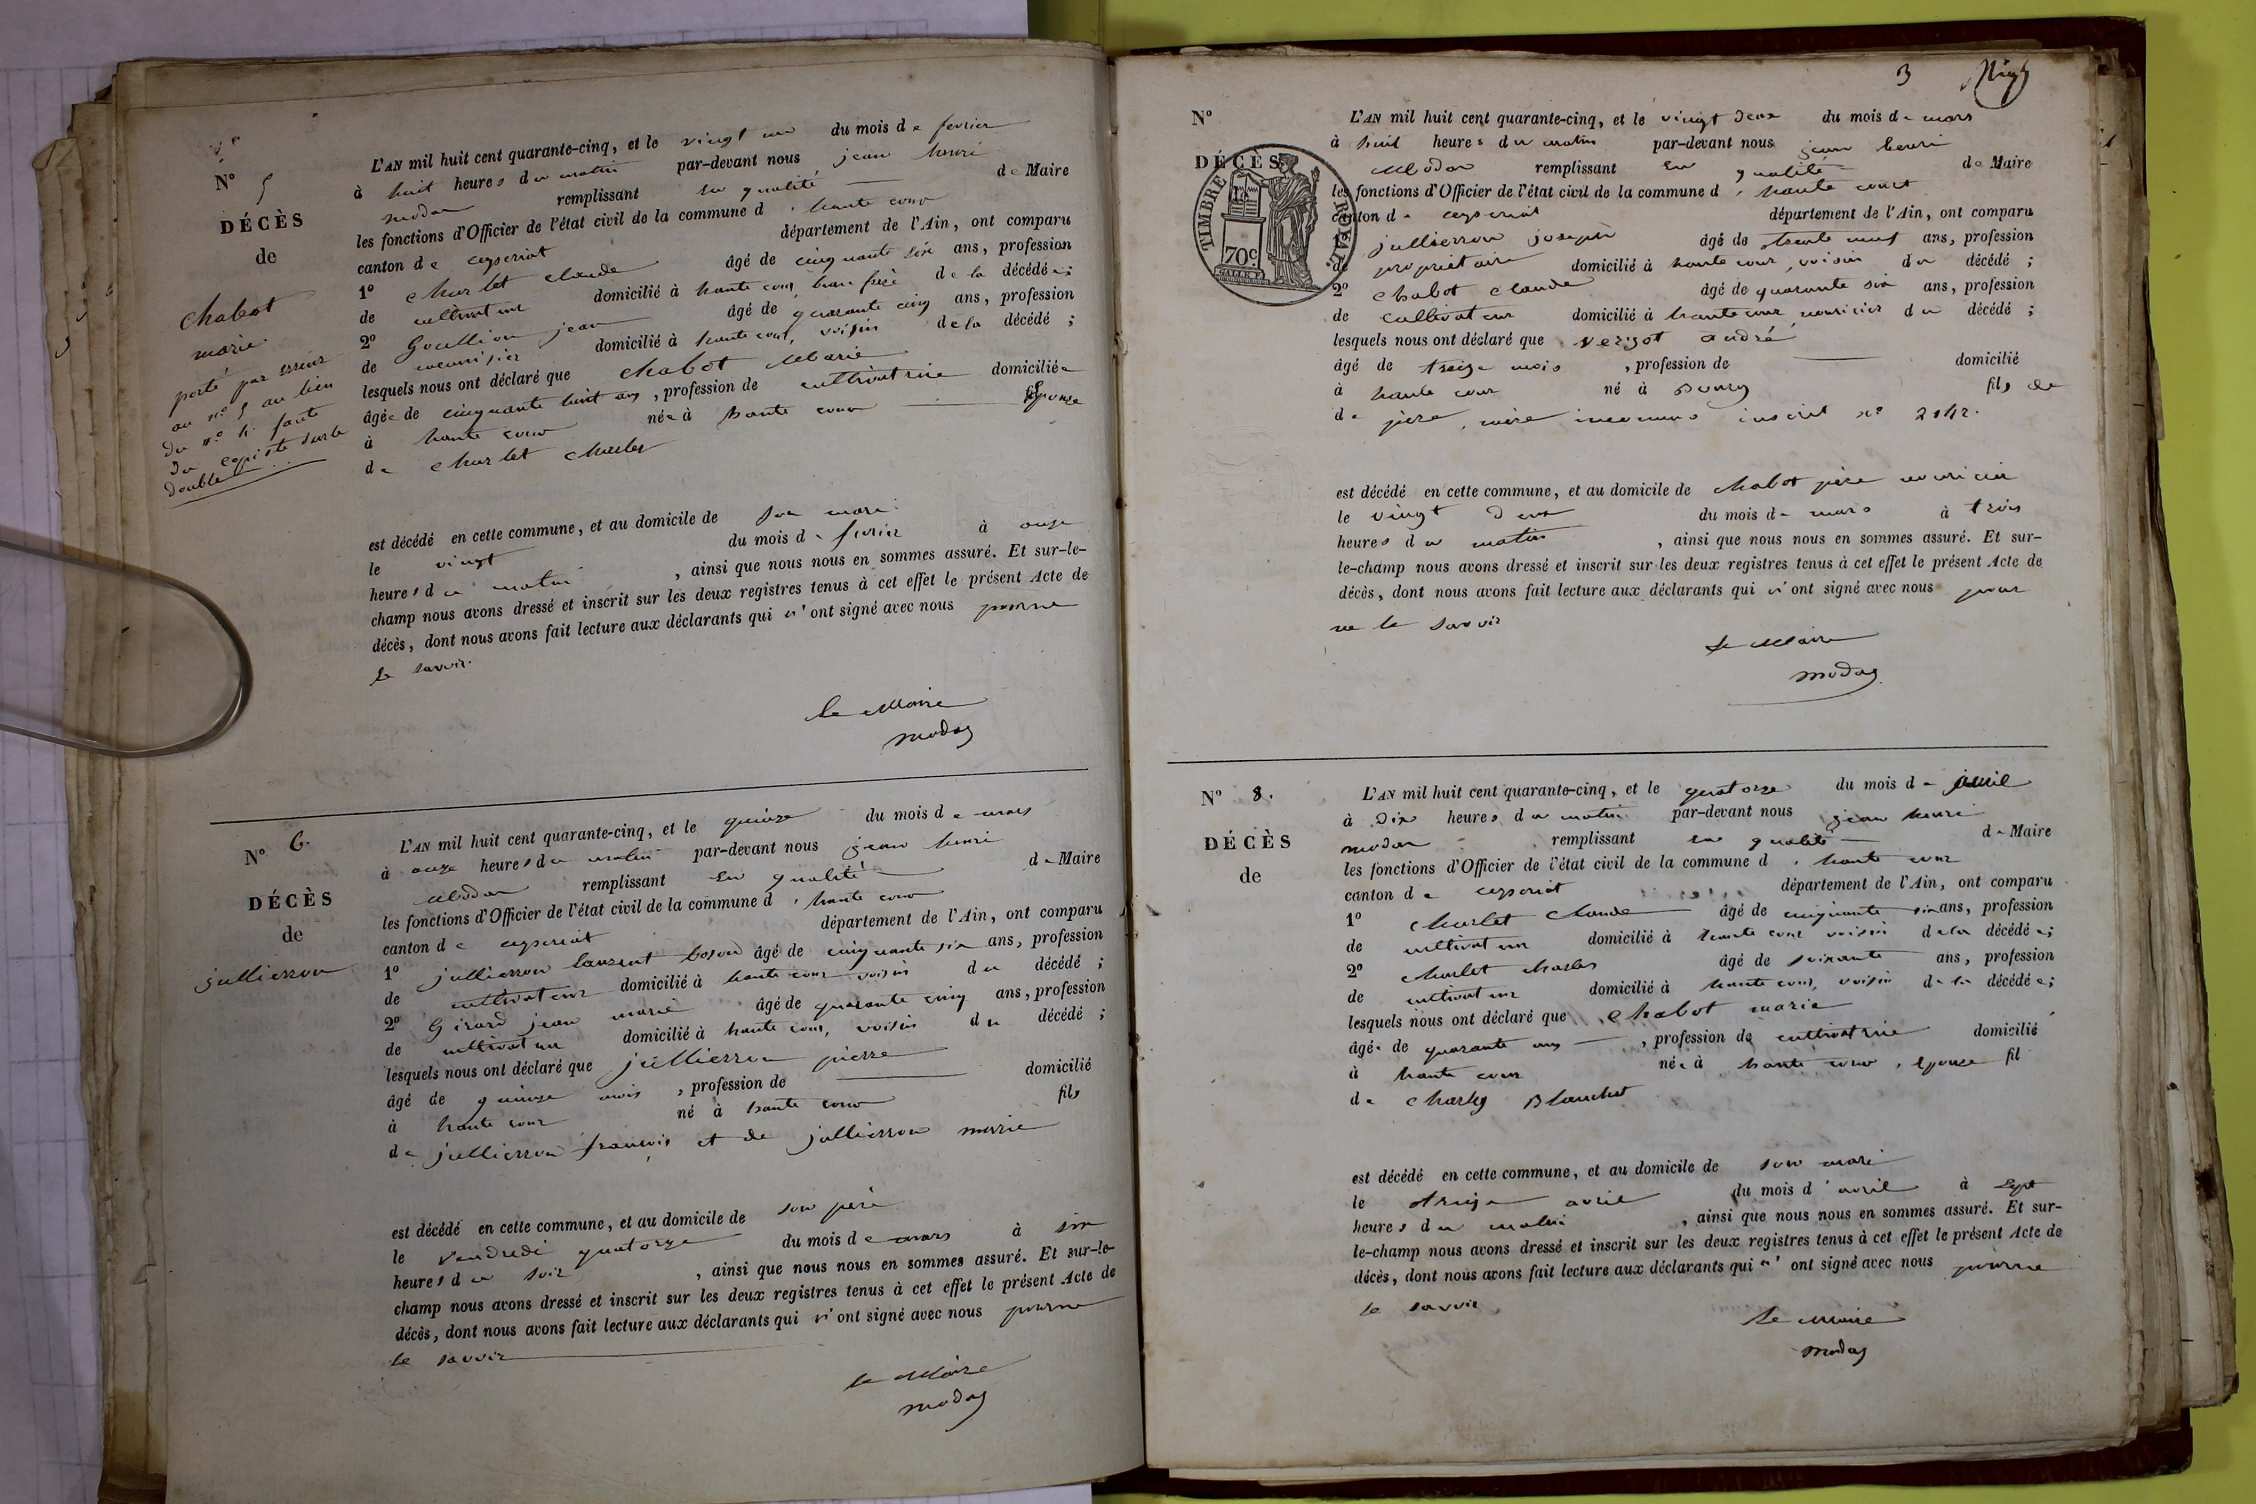 N° 5
DÉCÈS
de
chabot
marie
porté par erreur
au n° 5 au lieu
du n° 4. faute
du copiste sur le
double
L'AN mil huit cent quarante-cinq, et le vingt un du mois de fevrier
à huit heures du matin par-devant nous jean henri
modas remplissant en qualité de Maire
les fonctions d'Officier de l'état civil de la commune d' haute cour
canton de ceyseriat département de l'Ain, ont comparu
1° charlet claude âgé de cinquante six ans, profession
de cultivateur domicilié à haute cour, beau frère de la décédée;
2° Goullion jean âgé de quarante cinq ans, profession
de menuisier domicilié à haute cour, voisin de la décédé;
lesquels nous ont déclaré que chabot Marie
âgée de cinquante huit ans, profession de cultivatrice domiciliée
à haute cour née à haute cour épouse
de charlet charles
est décédé en cette commune, et au domicile de son mari
le vingt du mois de fevrier à onze
heures du matin, ainsi que nous nous en sommes assuré. Et sur-le-
champ nous avons dressé et inscrit sur les deux registres tenus à cet effet le présent Acte de
décès, dont nous avons fait lecture aux déclarants qui n'ont signé avec nous pour ne
le savoir.
le Maire
modas
N° 6.
DÉCÈS
de
jullierron
L'AN mil huit cent quarante-cinq, et le quinze du mois de mars
à onze heures du matin par-devant nous jean henri
Modas remplissant en qualité de Maire
les fonctions d'Officier de l'état civil de la commune d' haute cour
canton de ceyseriat département de l'Ain, ont comparu
1° jullierron laurent âgé de cinquante six ans, profession
de cultivateur domicilié à haute cour voisin du décédé;
2° Girard jean marie âgé de quarante cinq ans, profession
de cultivateur domicilié à haute cour, voisin du décédé;
lesquels nous ont déclaré que jullierron pierre
âgé de quinze mois, profession de domicilié
à haute cour né à haute cour fils
de jullierron françois et de jullierron marie
est décédé en cette commune, et au domicile de son père
le vendredi quatorze du mois de mars à six
heures du soir, ainsi que nous nous en sommes assuré. Et sur-le-
champ nous avons dressé et inscrit sur les deux registres tenus à cet effet le présent Acte de
décès, dont nous avons fait lecture aux déclarants qui n'ont signé avec nous pour ne
le savoir
le Maire
modas
3
N°
DÉCÈS
TIMBRE ROYAL
70c.
L'AN mil huit cent quarante-cinq, et le vingt deux du mois de mars
à huit heures du matin par-devant nous jean henri
Modas remplissant en qualité de Maire
les fonctions d'Officier de l'état civil de la commune d' haute cour
canton de ceyseriat département de l'Ain, ont comparu
1° jullierron joseph âgé de trente neuf ans, profession
de propriétaire domicilié à haute cour, voisin du décédé;
2° chabot claude âgé de quarante six ans, profession
de cultivateur domicilié à haute cour nouricier du décédé;
lesquels nous ont déclaré que vergot andré
âgé de treize mois, profession de domicilié
à haute cour né à Bourg fils de
de père, mère inconnus inscrit n° 2142.
est décédé en cette commune, et au domicile de chabot père nouricier
le vingt deux du mois de mars à trois
heures du matin, ainsi que nous nous en sommes assuré. Et sur-
le-champ nous avons dressé et inscrit sur les deux registres tenus à cet effet le présent Acte de
décès, dont nous avons fait lecture aux déclarants qui n'ont signé avec nous pour
ne le savoir
le Maire
modas
N° 8.
DÉCÈS
de
L'AN mil huit cent quarante-cinq, et le quatorze du mois de avril
à Dix heures du matin par-devant nous jean henri
modas remplissant en qualité de Maire
les fonctions d'Officier de l'état civil de la commune d' haute cour
canton de ceyseriat département de l'Ain, ont comparu
1° charlet claude âgé de cinquante six ans, profession
de cultivateur domicilié à haute cour voisin de la décédée;
2° charlet charles âgé de soixante ans, profession
de cultivateur domicilié à haute cour, voisin de la décédée;
lesquels nous ont déclaré que chabot marie
âgée de quarante ans, profession de cultivatrice domicilié
à haute cour née à haute cour, épouse fil
de charles Blanchot
est décédé en cette commune, et au domicile de son mari
le treize avril du mois d'avril à sept
heures du matin, ainsi que nous nous en sommes assuré. Et sur-
le-champ nous avons dressé et inscrit sur les deux registres tenus à cet effet le présent Acte de
décès, dont nous avons fait lecture aux déclarants qui n'ont signé avec nous pour ne
le savoir
le Maire
modas